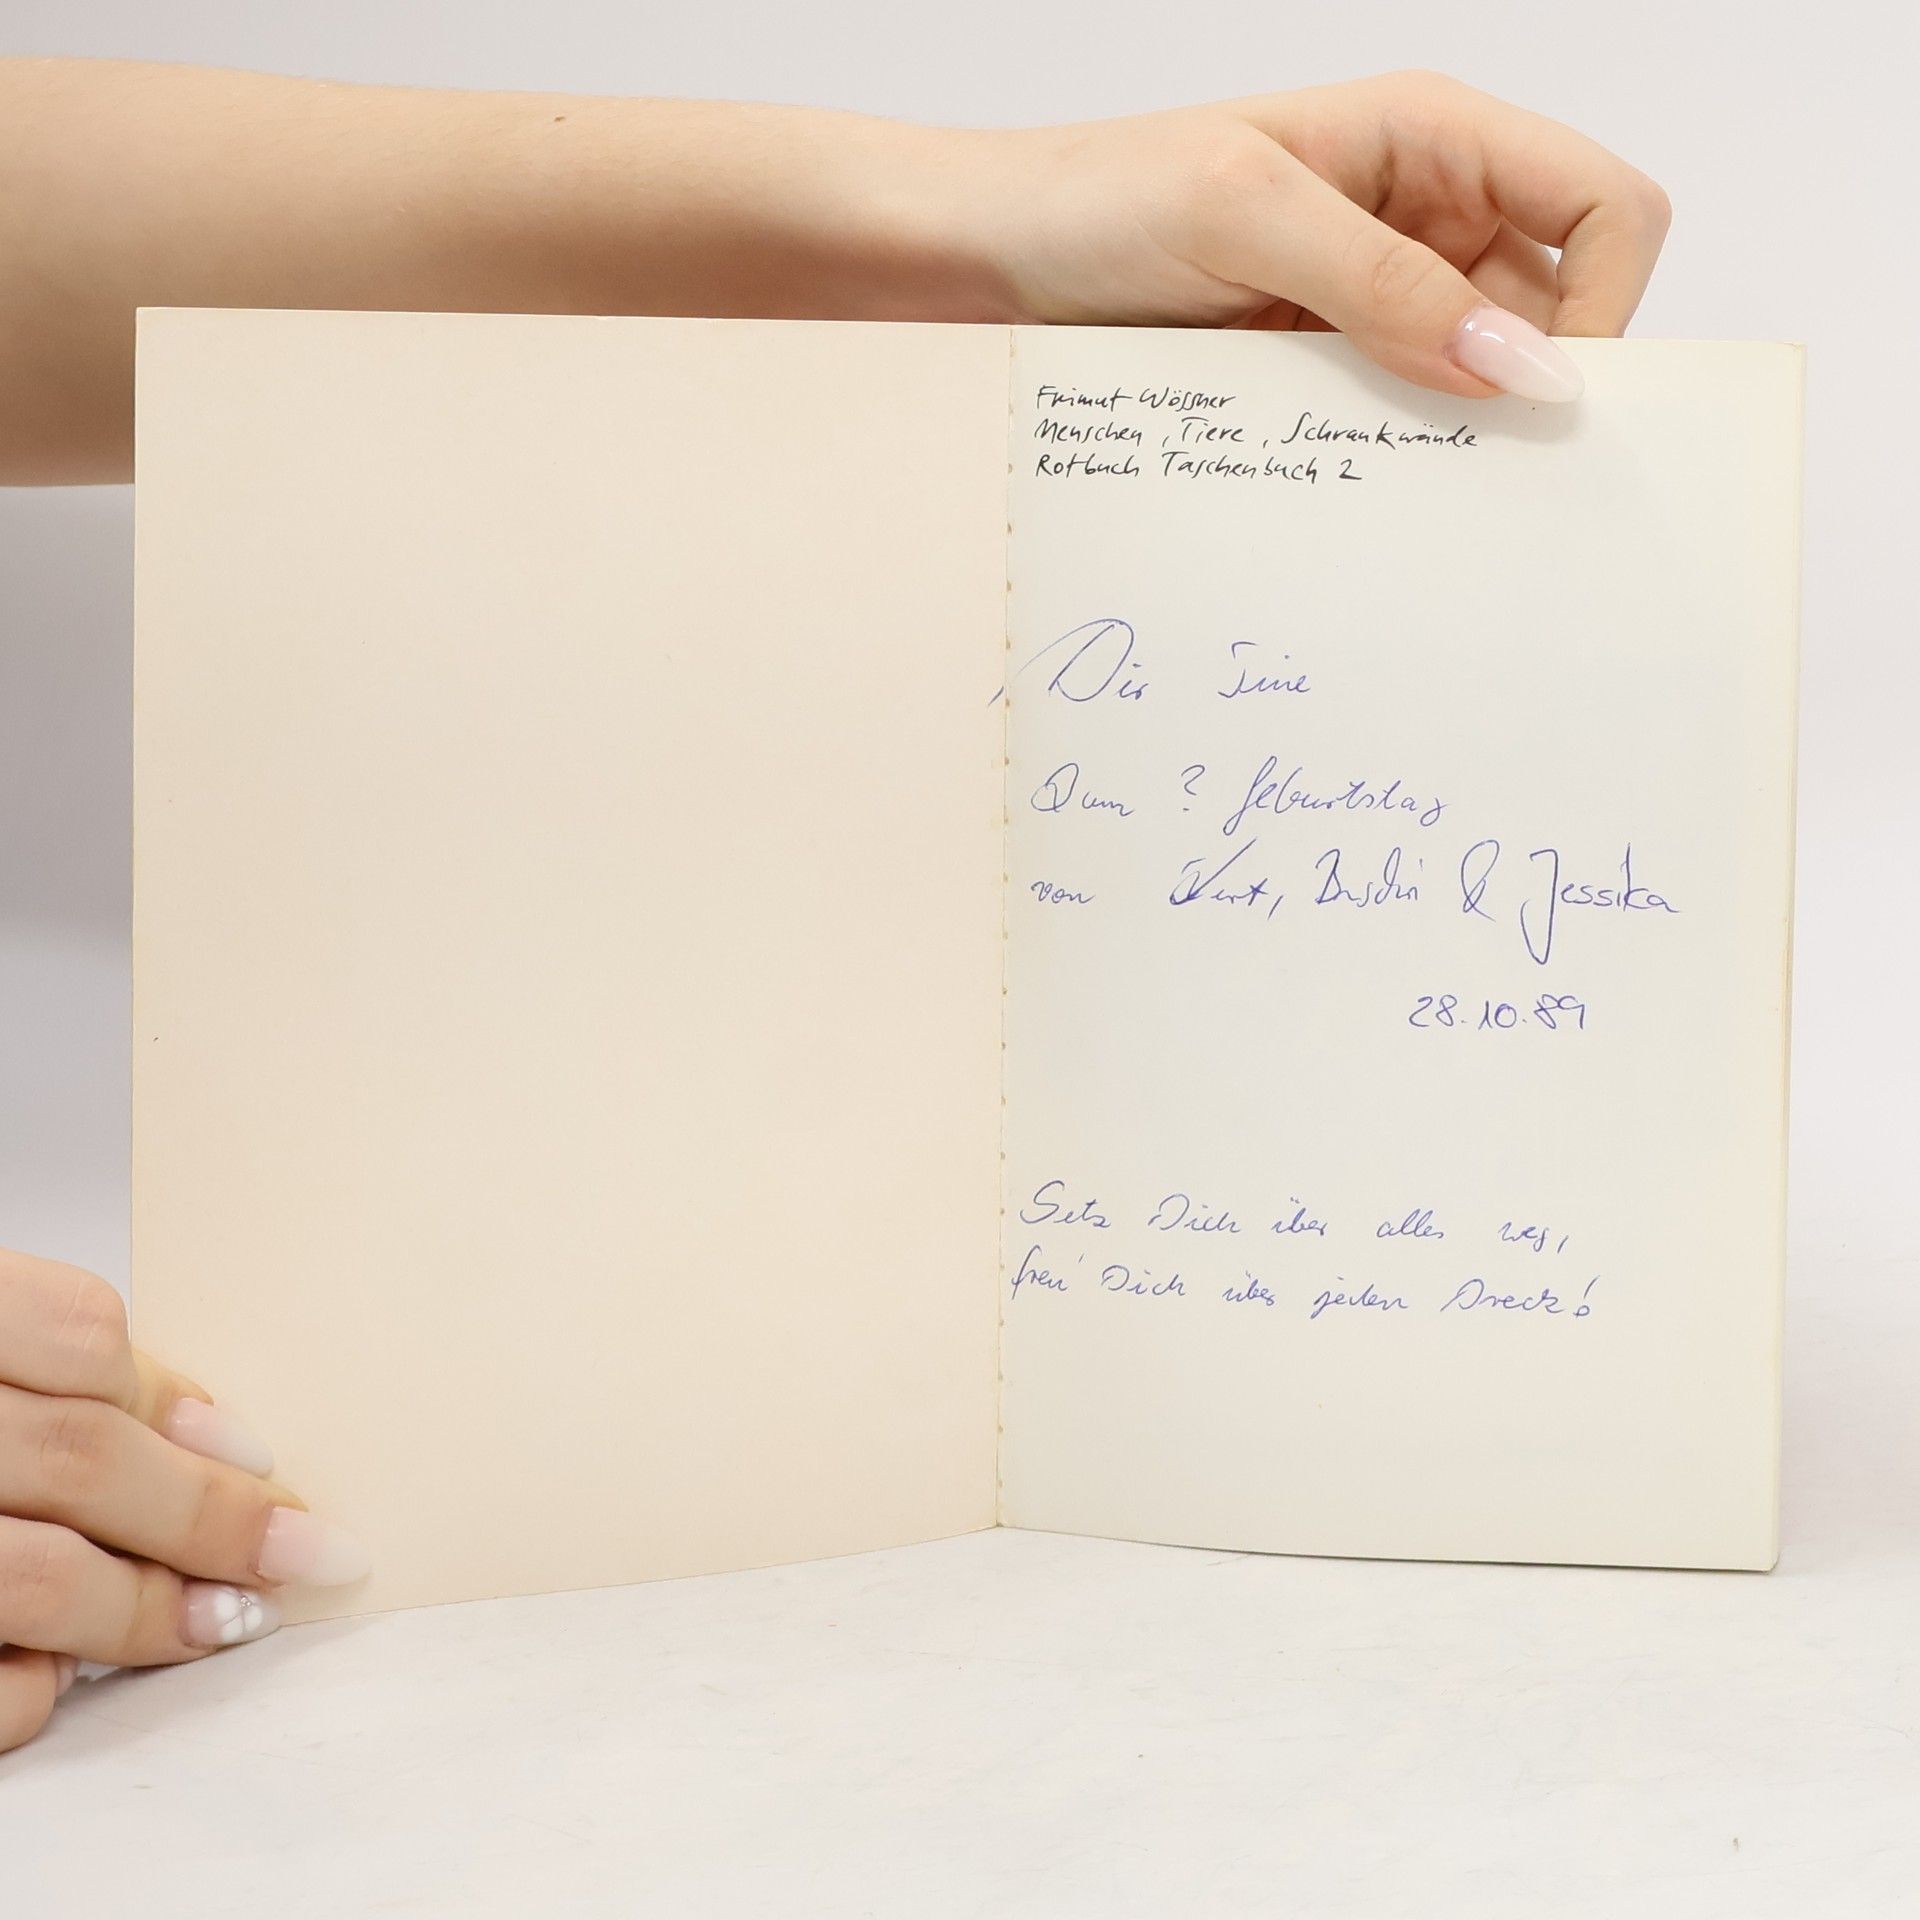 Freimut Wössner
Menschen, Tiere, Schrankwände
Rotbuch Taschenbuch 2
Dir Tine
Zum ? Geburtstag
von & Jessika
28.10.89
Setz Dich über alles weg,
freu' Dich über jeden Dreck!